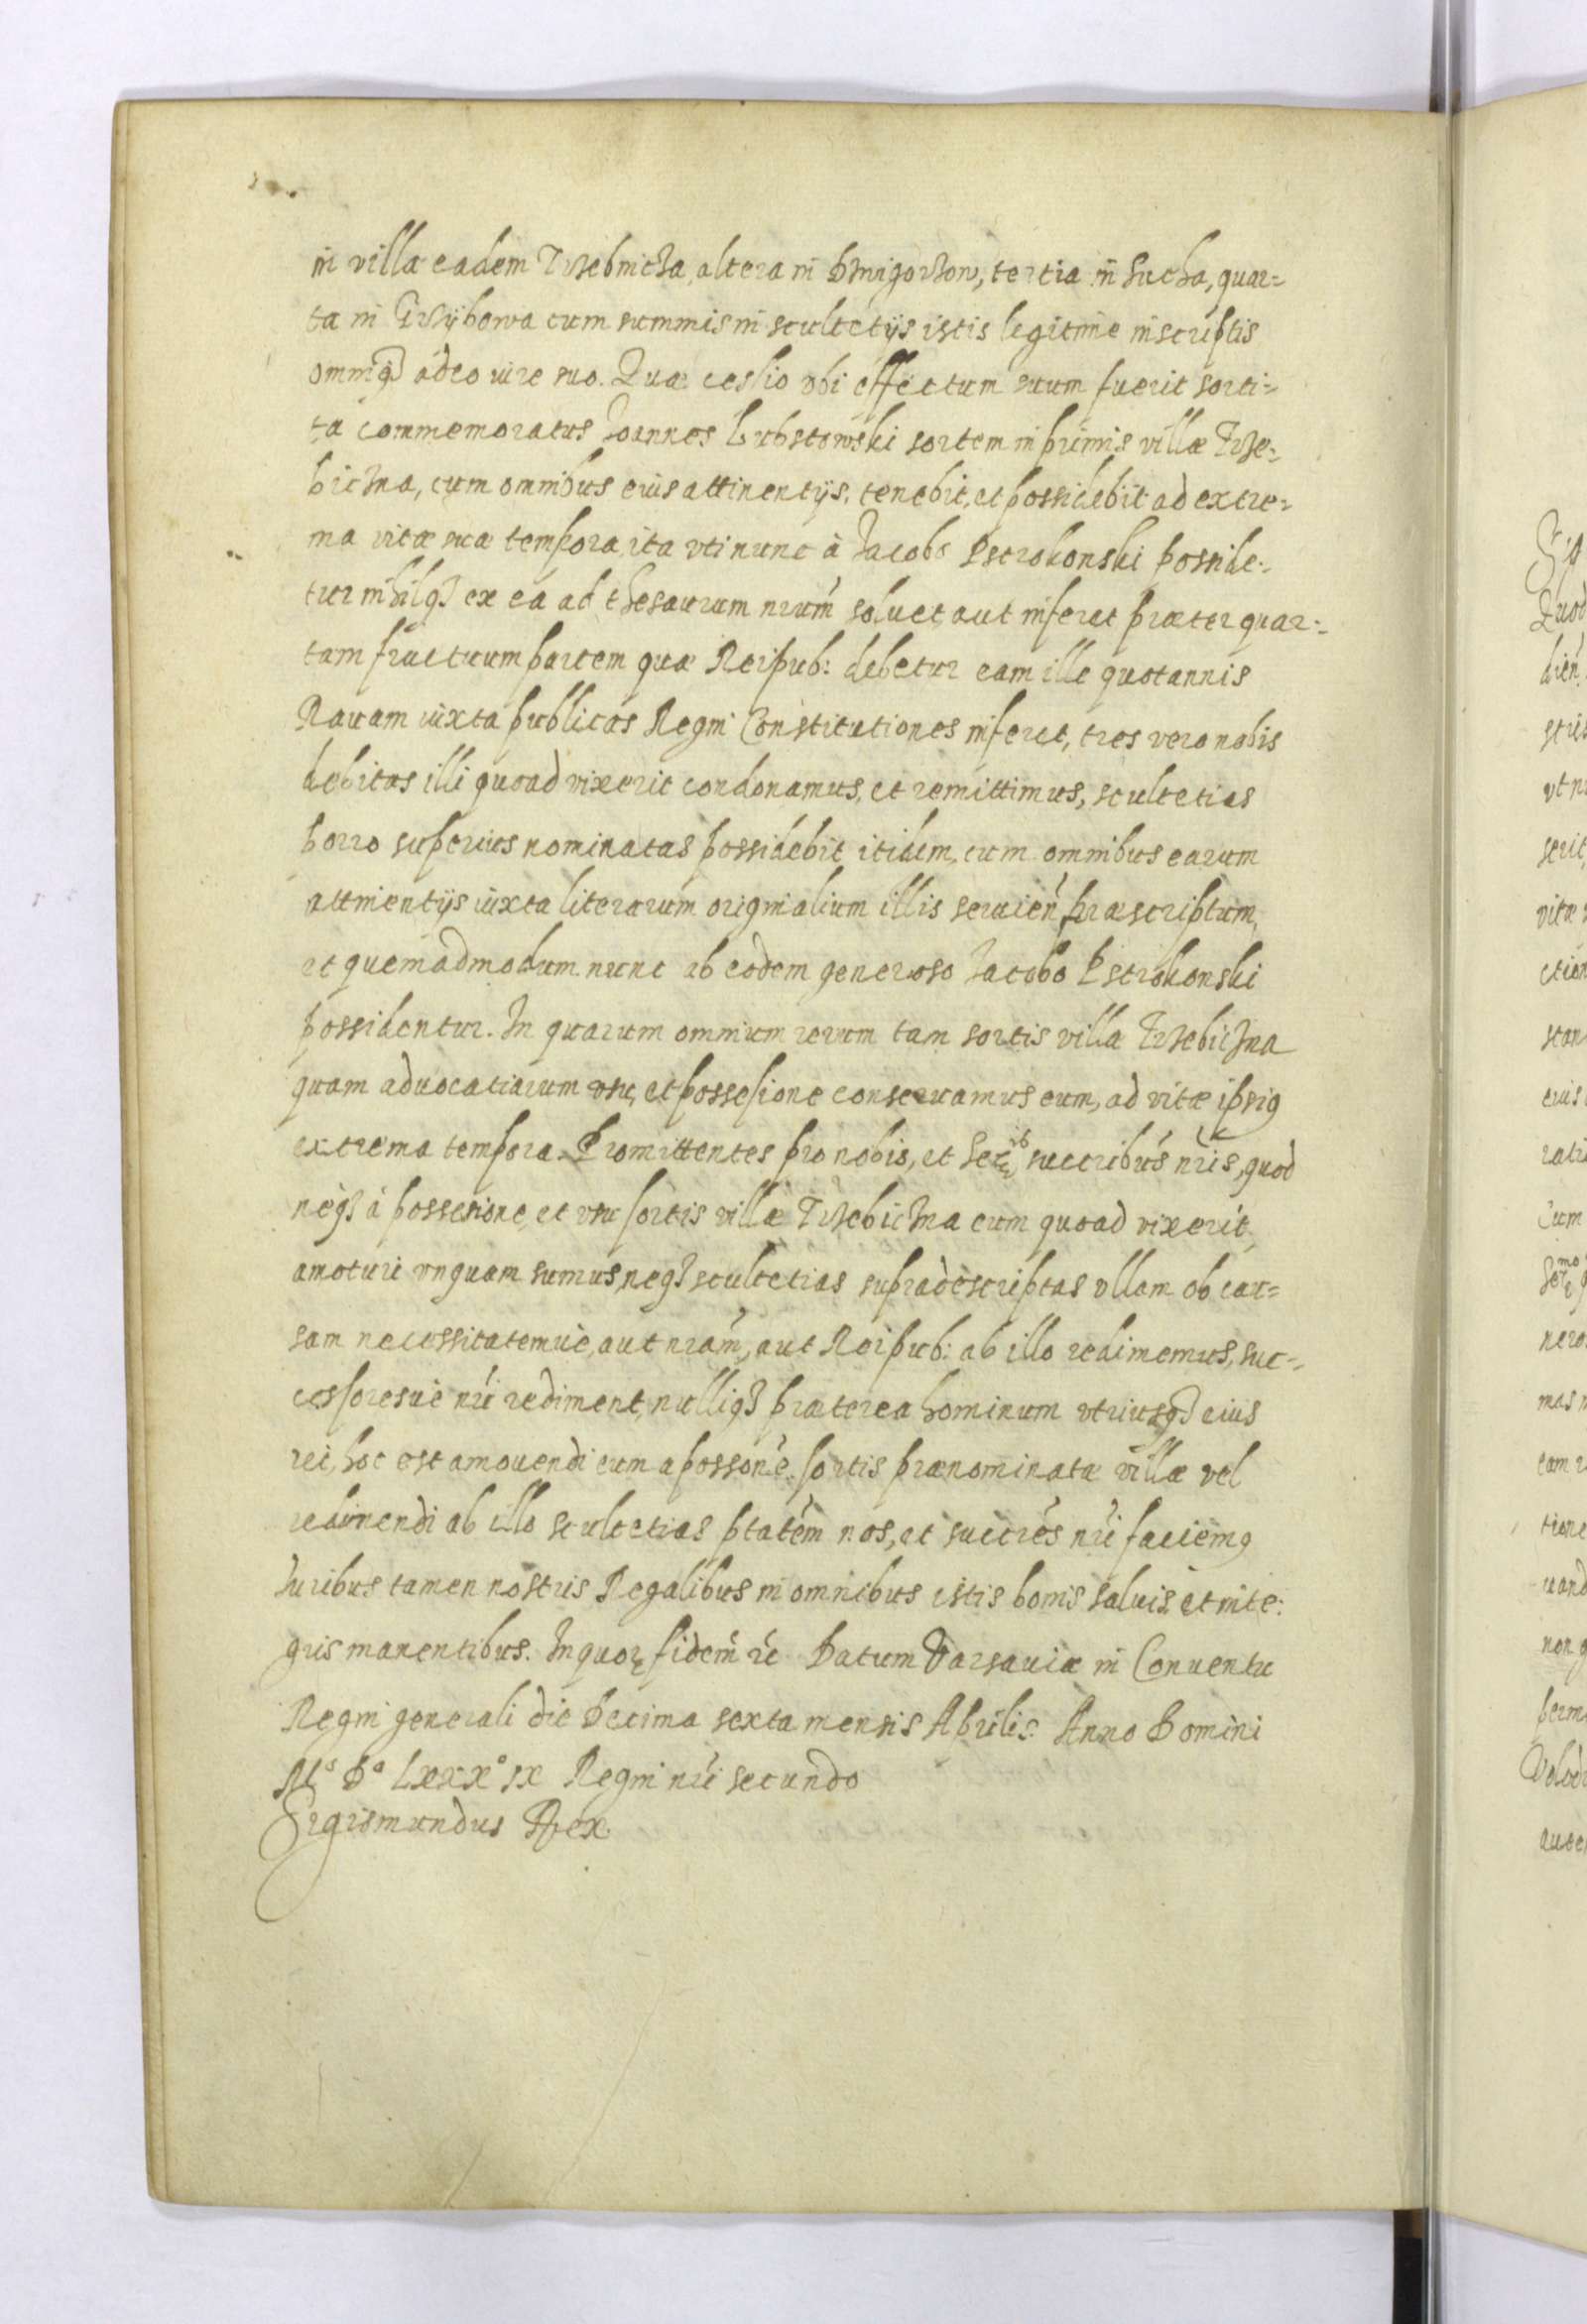 in villa eadem Trzebnicza, altera in Dmigorzow, tertia in Sucha, quar=
ta in Grzÿbowa cum summis in scultetÿs istis legitime inscriptis
omniq3 adeo iure suo. Quæ cessio vbi effectum suum fuerit sorti=
ta commemoratus Joannes Lubstowski sortem inprimis villæ Trze=
biczna, cum omnibus eius attinentÿs, tenebit, et possidebit ad extre=
ma vitæ suæ tempora, ita vti nunc à Jacobo Pstrokonski posside=
tur nihilq3 ex ea ad thesaurum nrum soluet aut inferet præter quar=
tam fructuum partem quæ Reipub: debetur eam ille quotannis
Rauam iuxta publicas Regni Constitutiones inferet, tres vero nobis
debitas illi quoad vixerit condonamus, et remittimus, scultetias
porro superius nominatas possidebit itidem, cum omnibus earum
attinentÿs iuxta literarum originalium illis seruien præscriptum,
et quemadmodum nunc ab eodem generoso Jacobo Pstrokonski
possidentur. In quarum omnium rerum tam sortis villæ Trzebiczna
quam aduocatiarum vsu, et possessione conseruamus eum, ad vitæ ipsig
extrema tempora. Promittentes pro nobis, et Ser succribus nris, quod
neq3 à possesione, et vsu sortis villæ Trzebiczna eum quoad vixerit,
amoturi vnquam sumus, neq3 scultetias supradescriptas vllam ob cau=
sam necessitatemue, aut nram, aut Reipub: ab illo redimemus, suc=
cessoresue nri rediment, nulliq3 præterea hominum vtriusq3 eius
rei, hoc est amouendi eum a possone sortis prænominatæ villæ vel
redimendi ab illo scultetias ptatem nos, et succres nri faciemg
Juribus tamen nostris Regalibus in omnibus istis bonis saluis et inte=
gris manentibus. In quor fidem re Datum Varsauiæ in Conuentu
Regni generali die Decima sexta mensis Aprilis. Anno Domini
Mº Dº Lxxxº ix Regni nri secundo
Sigismundus Rex.